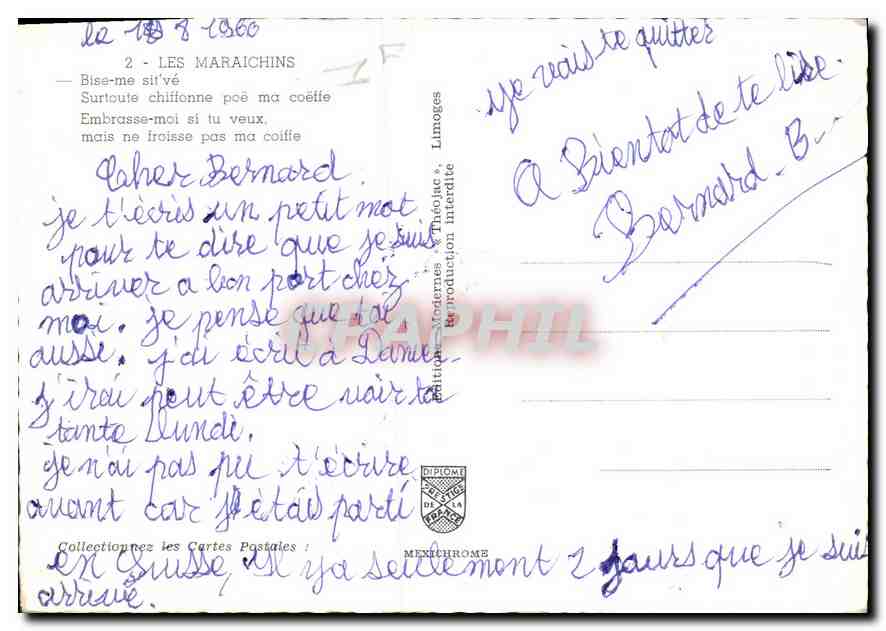 le 18 8 1960
2 - LES MARAICHINS
— Bise-me sit'vé
Surtoute chiffonne poë ma coëffe
Embrasse-moi si tu veux,
mais ne froisse pas ma coiffe
1F
Cher Bernard.
je t'écris un petit mot
pour te dire que je suis
arriver a bon port chez
moi. je pense que toi
aussi. j'ai écrit à Daniel.
j'irai peut être voir ta
tante Lundi.
je n'ai pas pu t'écrire
avant car j'étais parti
en Suisse, Il y a seulement 2 jours que je suis
arrivé.
je vais te quitter
A Bientot de te lire.
Bernard. B
Editions Modernes « Théojac », Limoges
Reproduction interdite
DIPLOME
PRESTIGE
DE LA
FRANCE
Collectionnez les Cartes Postales :
MEXICHROME
CPAPHIL